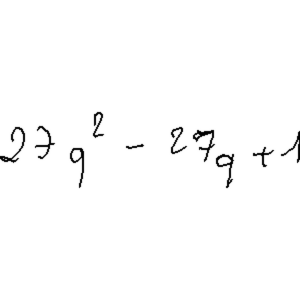 27q² - 27q + 1